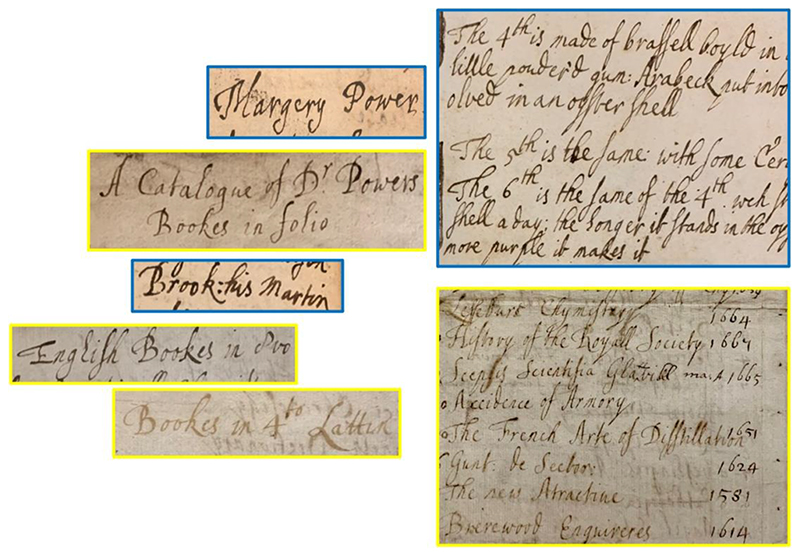 Margery Power
A Catalogue of Dr Powers
Bookes in folio
Brook: his Martin
English Bookes in 8vo
Bookes in 4to Lattin
The 4th is made of brassell boyld in
little pouderd gum: Arabeck put into
olved in an oyster shell
The 5th is the same: with some
The 6th is the same of the 4th. wch
shell a day; the longer it stands in the oy
more purple it makes it
Lefeburs Chymistery 1664
History of the Royall Society 1667
Scepsis Scientifia Glanvill 1665
Accidence of Armory
The French Arte of Disstillation 1651
Gunt: de Sector 1624
The new Atractive 1581
Brerewood Enquireres 1614